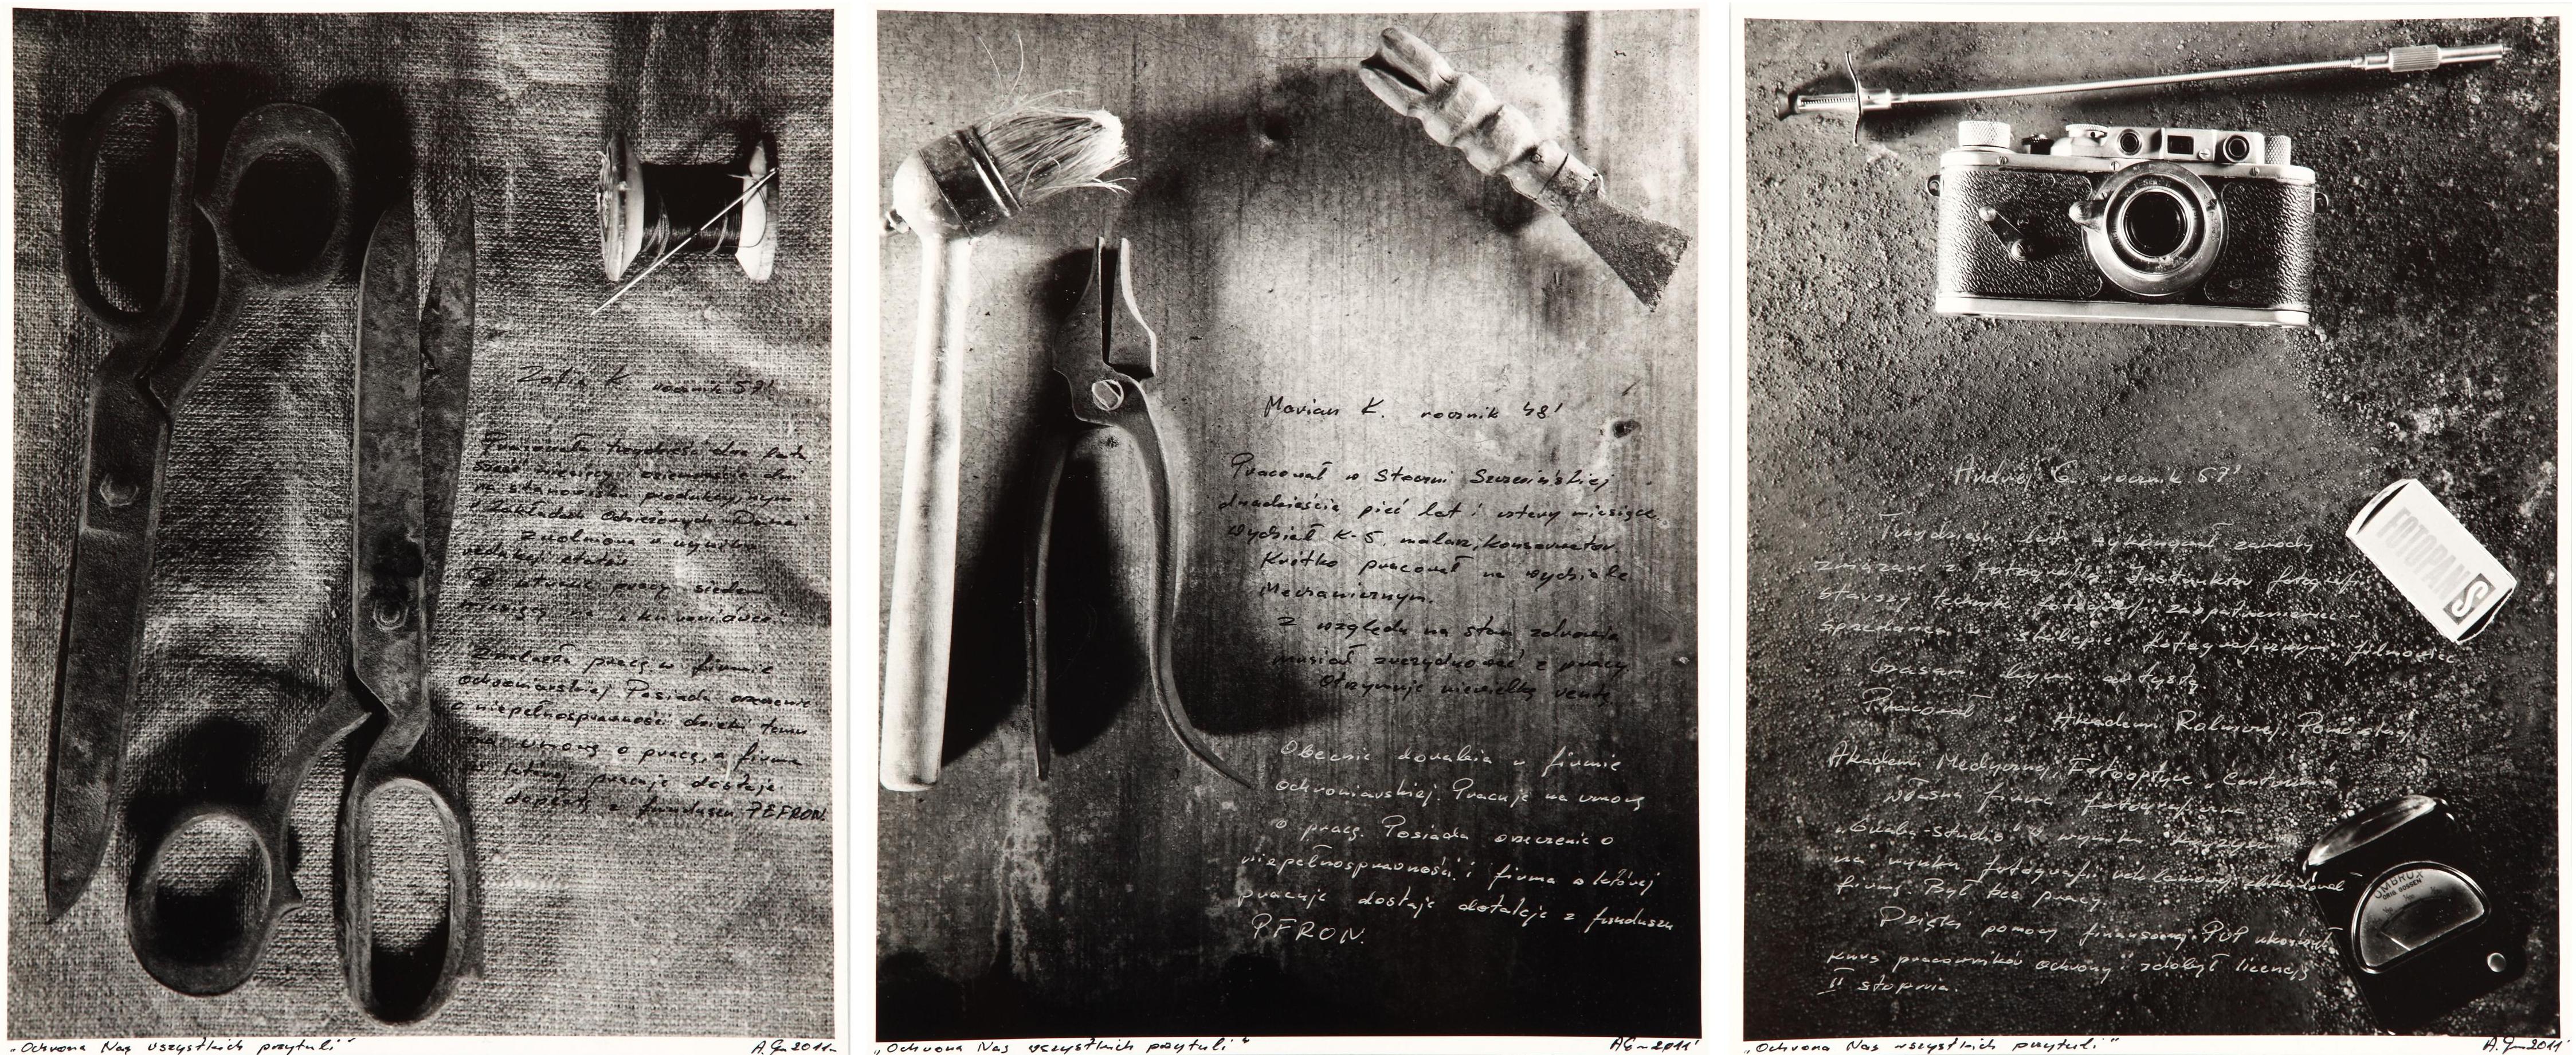 Zofia K. rocznik 57'
Pracowała trzydzieści dwa lata
sześć miesięcy osiemnaście dni
na stanowisku produkcyjnym
w Zakładach Odzieżowych "Dana"
Zwolniona w wyniku
redukcji etatów.
Po utracie pracy siedem
miesięcy na
Znalazła pracę w firmie
ochroniarskiej Posiada orzeczenie
o niepełnosprawności dzięki temu
ma umowę o pracę, a firma
w której pracuje dostaje
dopłaty z funduszu PEFRON.
"Ochrona Nas wszystkich przytuli"
2011
Marian K. rocznik 48'
Pracował w Stoczni Szczecińskiej
dwadzieścia pięć lat i cztery miesiące.
Wydział K-5. malarz, konserwator.
Krótko pracował na wydziale
Mechanicznym.
Z względu na stan zdrowia
musiał zrezygnować z pracy.
Otrzymuje niewielką rentę.
Obecnie dorabia w firmie
ochroniarskiej. Pracuje na umowę
o pracę. Posiada orzeczenie o
niepełnosprawności i firma w której
pracuje dostaje dotacje z funduszu
PFRON.
"Ochrona Nas wszystkich przytuli"
2011'
Andrzej G. rocznik 67'
Trzydzieści lat wykonywał zawody
związane z fotografią Instruktor fotografii,
starszy technik fotografii, zaopatrzeniowiec
sprzedawca w sklepie fotograficznym, filmowiec
czasami bywa artystą.
Pracował w Akademi Rolniczej, Pomorskiej
Akademi Medycznej, Fotooptyce, "Centrum"
własna firma fotograficzna
w wyniku kryzysu
na rynku fotografii reklamowej zlikwidował
firmę. Był bez pracy.
Dzięki pomocy finansowej PUP ukończył
kurs pracowników ochrony i zdobył licencję
II stopnia.
FOTOPAN S
OMBRUX
ORIG GOSSEN
"Ochrona Nas wszystkich przytuli"
2011